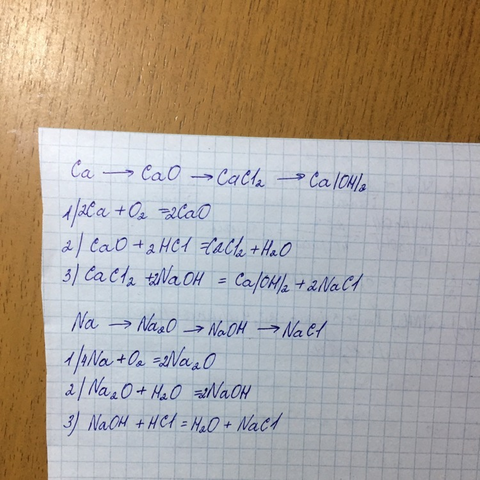 Ca → CaO → CaCl₂ → Ca(OH)₂
1) 2Ca + O₂ = 2CaO
2) CaO + 2HCl = CaCl₂ + H₂O
3) CaCl₂ + 2NaOH = Ca(OH)₂ + 2NaCl
Na → Na₂O → NaOH → NaCl
1) 4Na + O₂ = 2Na₂O
2) Na₂O + H₂O = 2NaOH
3) NaOH + HCl = H₂O + NaCl